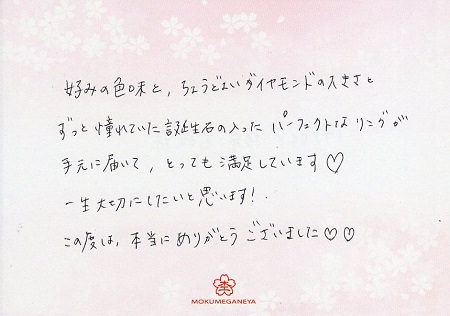 好みの色味と、ちょうどよいダイヤモンドの大きさと
ずっと憧れていた誕生石の入ったパーフェクトなリングが
手元に届いて、とっても満足しています♡
一生大切にしたいと思います!
この度は、本当にありがとうございました♡♡
杢
MOKUMEGANEYA